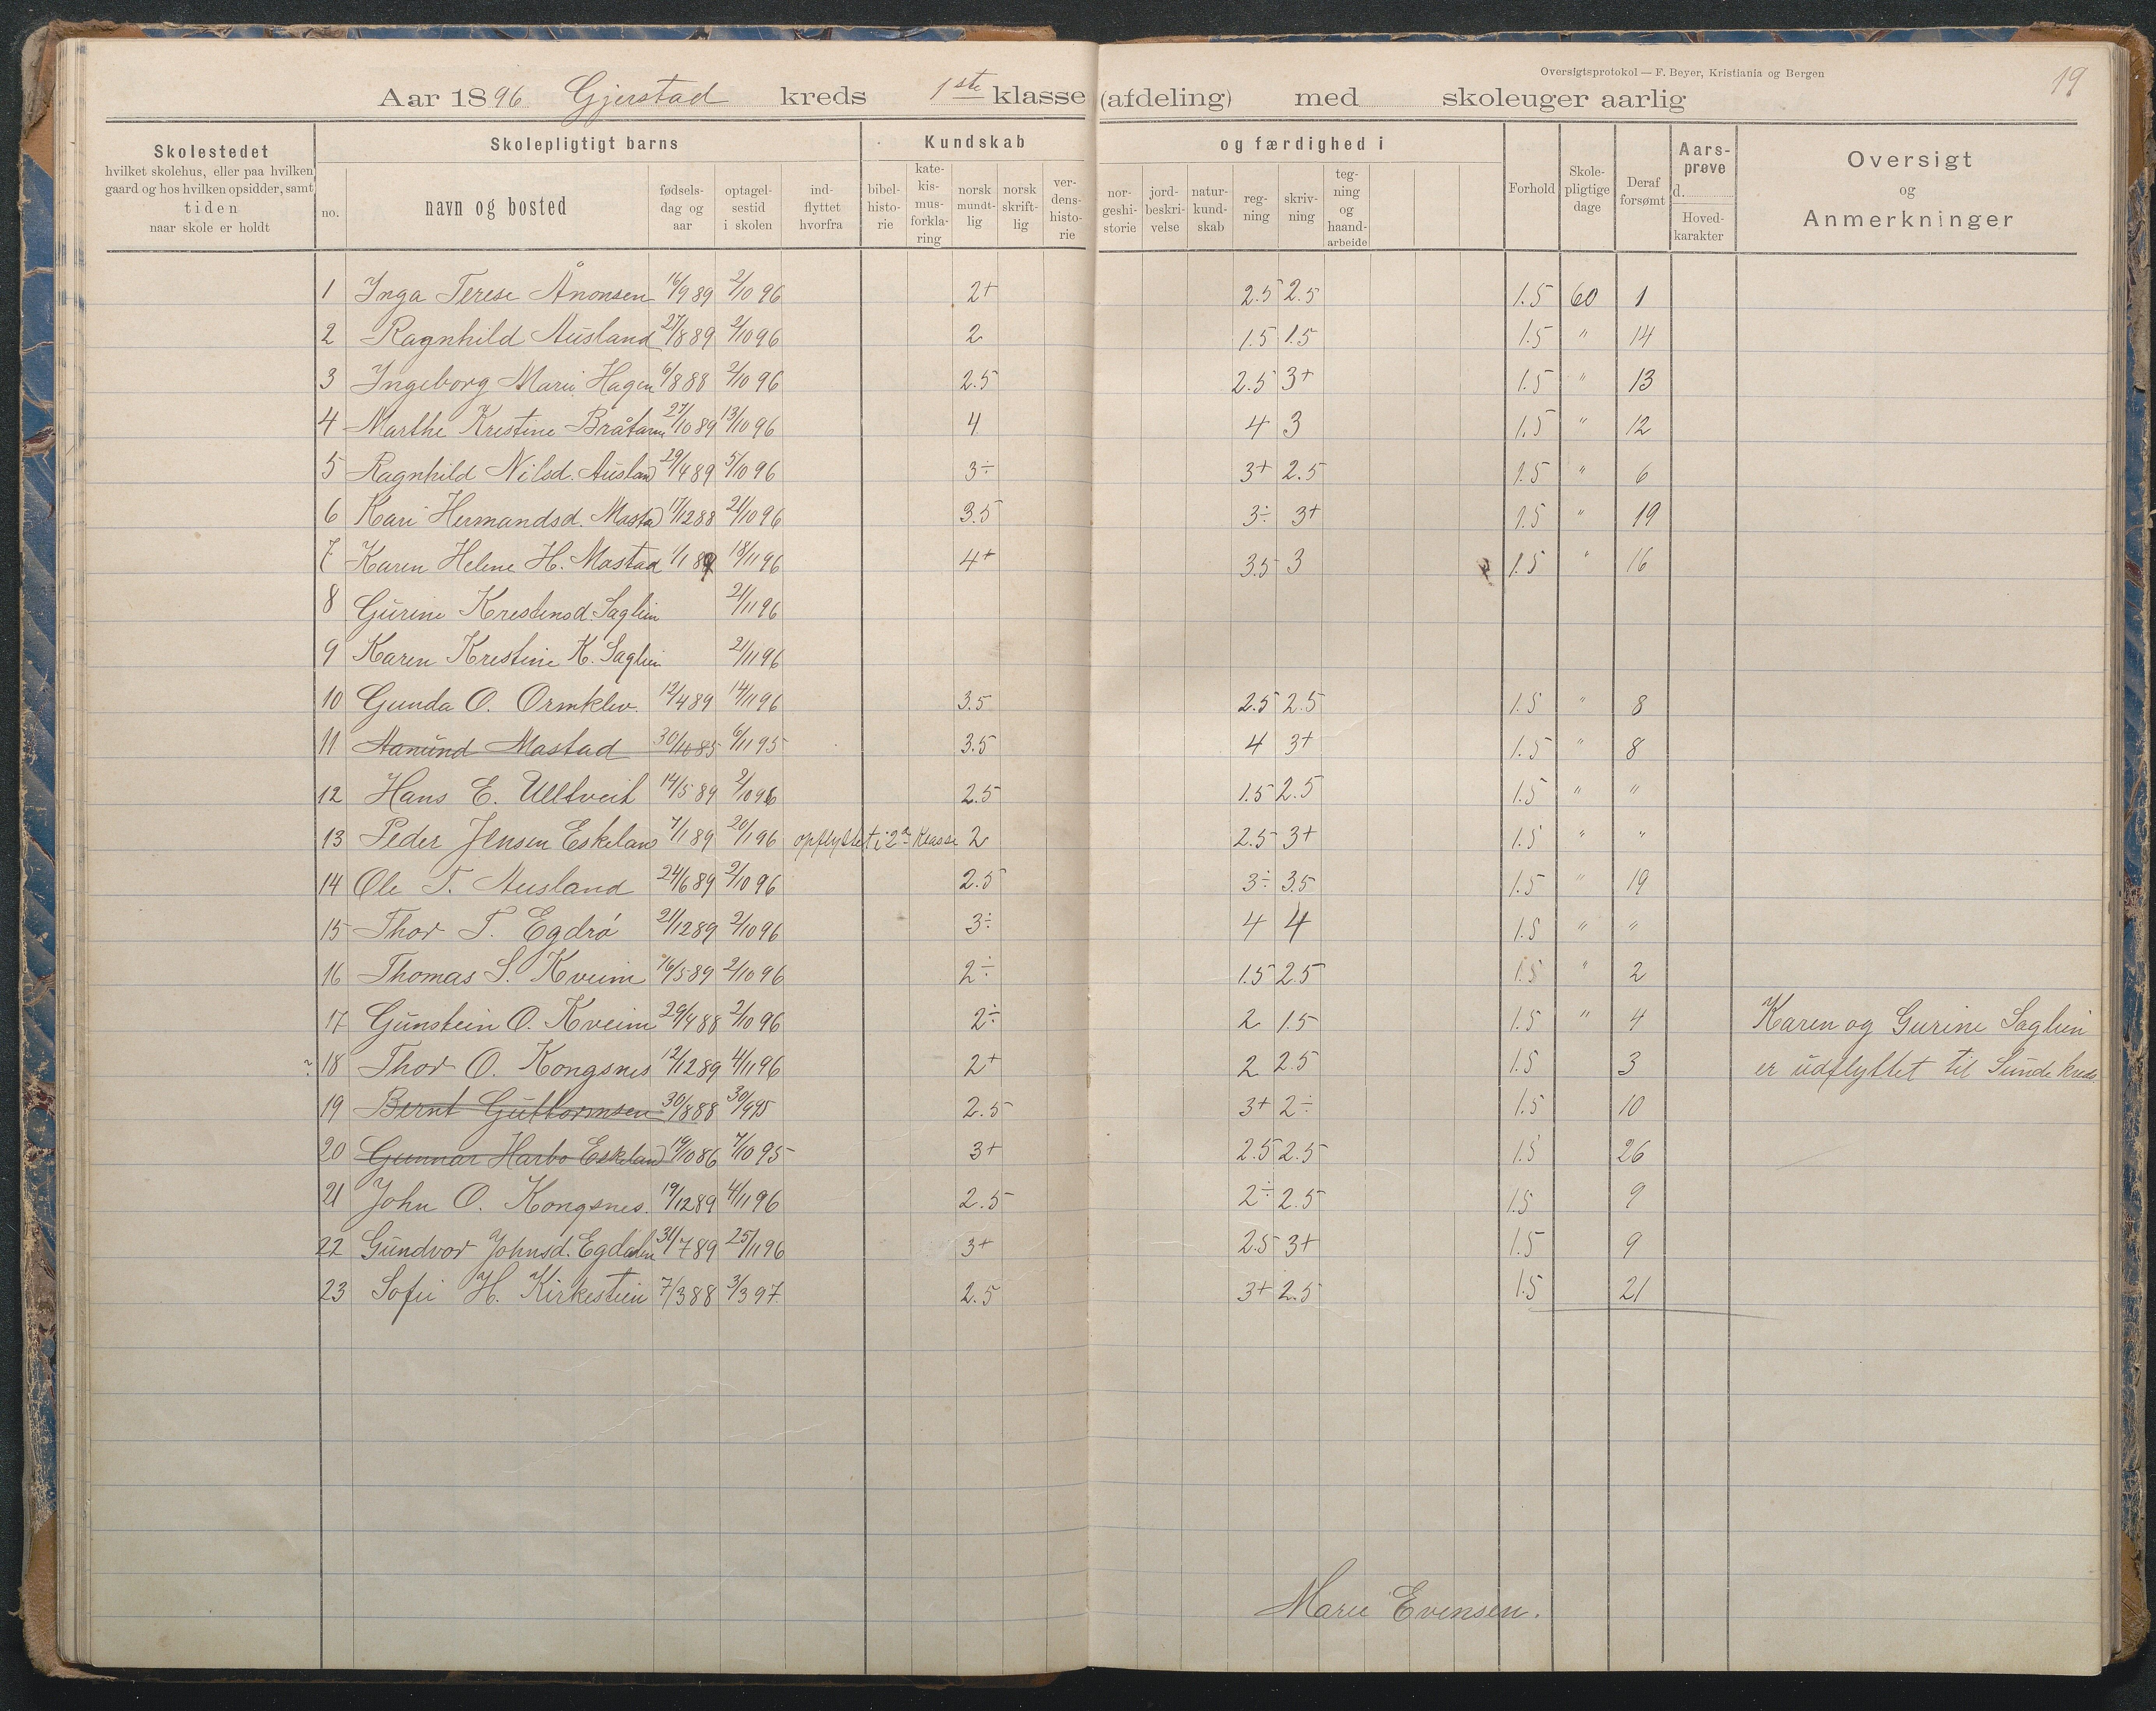 Oversigtsprotokol — F. Beyer, Kristiania og Bergen
19
Aar 1896 Gjerstad kreds 1ste klasse (afdeling) med skoleuger aarlig
Skolestedet hvilket skolehus, eller paa hvilken gaard og hos hvilken opsidder, samt tiden naar skole er holdt
Skolepligtigt barns
no. navn og bosted fødselsdag og aar optagelsestid i skolen indflyttet hvorfra
Kundskab og færdighed i
bibelhistorie katekismusforklaring norsk mundtlig norsk skriftlig verdenshistorie norgeshistorie jordbeskrivelse naturkundskab regning skrivning tegning og haandarbeide
Forhold Skolepligtige dage Deraf forsømt Aarsprøve d. Hovedkarakter
Oversigt og Anmerkninger
1 Inga Terese Ånonsen 16/9 89 2/10 96 2+ 2.5 2.5 1.5 60 1
2 Ragnhild Ausland 27/8 89 2/10 96 2 1.5 1.5 1.5 " 14
3 Ingeborg Marie Hagen 6/8 88 2/10 96 2.5 2.5 3+ 1.5 " 13
4 Marthe Kristine 27/10 89 13/10 96 4 4 3 1.5 " 12
5 Ragnhild Nilsd. Ausland 29/4 89 5/10 96 3÷ 3+ 2.5 1.5 " 6
6 Kari Hermandsd. Mostad 17/12 88 21/10 96 3.5 3÷ 3+ 1.5 " 19
7 Karen Helene H. Mostad 1/1 89 18/11 96 4+ 3.5 3 1.5 " 16
8 Gurine Krestensd. Saglien 21/11 96
9 Karen Kristine K. Saglien 21/11 96
10 Gunda O. Ormklev. 12/4 89 14/11 96 3.5 2.5 2.5 1.5 " 8
11 Aanund Mostad 6/11 95 3.5 4 3+ 1.5 " 8
12 Hans E. Ulltveit 14/5 89 2/10 96 2.5 1.5 2.5 1.5 " "
13 Peder Jensen Eskeland 7/1 89 20/1 96 opflyttet i 2den Klasse 2 2.5 3+ 1.5 " "
14 Ole T. Ausland 24/6 89 2/10 96 2.5 3÷ 3.5 1.5 " 19
15 Thor T. Egdrø 21/12 89 2/10 96 3÷ 4 4 1.5 " "
16 Thomas S. Kveim 16/5 89 2/10 96 2÷ 1.5 2.5 1.5 " 2
17 Gunstein O. Kveim 29/4 88 2/10 96 2÷ 2 1.5 1.5 " 4 Karen og Gurine Saglien
18 Thor O. Kongsnes 12/12 89 4/11 96 2+ 2 2.5 1.5 3 er udflyttet til Sunde kreds
19 Bernt Guttormsen 30/8 88 30/9 95 2.5 3+ 2÷ 1.5 10
20 Gunnar Harbo Eskeland 19/10 86 7/10 95 3+ 2.5 2.5 1.5 26
21 John O. Kongsnes. 19/12 89 4/11 96 2.5 2÷ 2.5 1.5 9
22 Gundvor Johnsd. Egdalen 31/7 89 25/11 96 3+ 2.5 3+ 1.5 9
23 Sofie H. Kirkestien 7/3 88 3/3 97. 2.5 3+ 2.5 1.5 21
Marie Evensen.